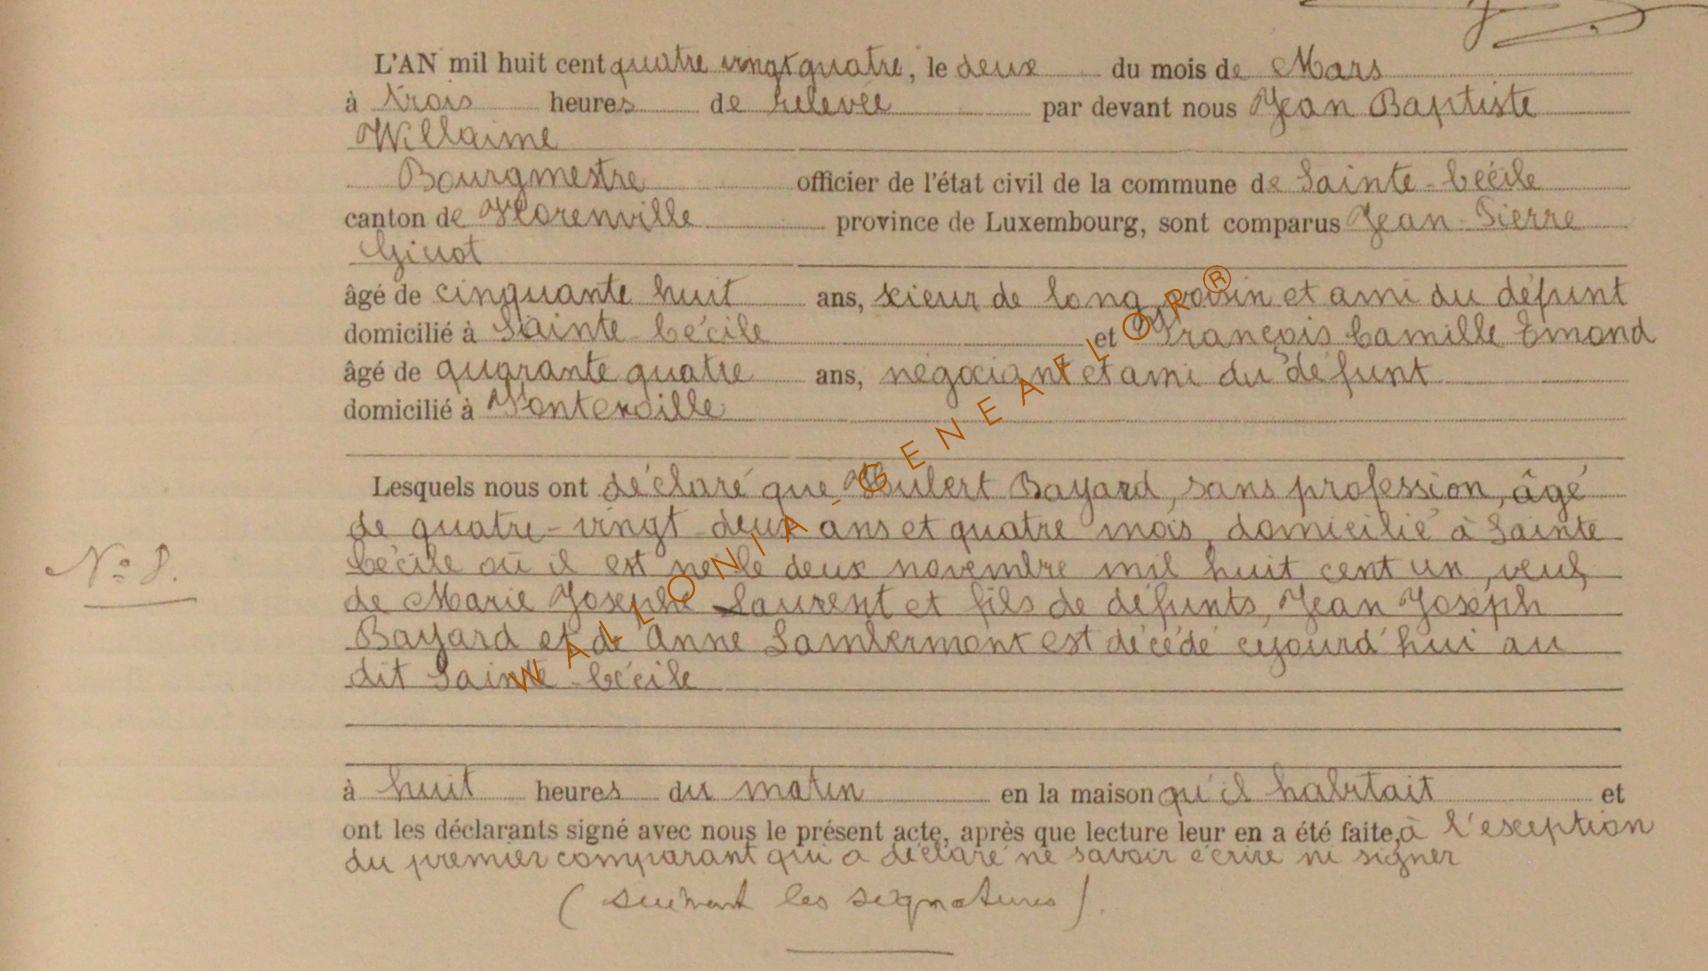 L'AN mil huit cent quatre vingt quatre, le deux du mois de Mars
à trois heures de relevée par devant nous Jean Baptiste
Willaime
Bourgmestre officier de l'état civil de la commune de Sainte-Cécile
canton de Florenville province de Luxembourg, sont comparus Jean-Pierre
Giuot
âgé de cinquante huit ans, scieur de long, voisin et ami du défunt
domicilié à Sainte Cécile et François Camille Emond
âgé de quarante quatre ans, négociant et ami du défunt
domicilié à Fontenoille
Lesquels nous ont déclaré que Hubert Bayard, sans profession, âgé
de quatre-vingt deux ans et quatre mois, domicilié à Sainte
Cécile où il est né le deux novembre mil huit cent un, veuf
de Marie Josephe Laurent et fils de défunts, Jean Joseph
Bayard et de Anne Lambermont est décédé cejourd'hui au
dit Sainte-Cécile
N° 8.
à huit heures du matin en la maison qu'il habitait et
ont les déclarants signé avec nous le présent acte, après que lecture leur en a été faite, à l'exception
du premier comparant qui a déclaré ne savoir écrire ni signer
(suivent les signatures).
WALLONIA-GENEAFLOR®